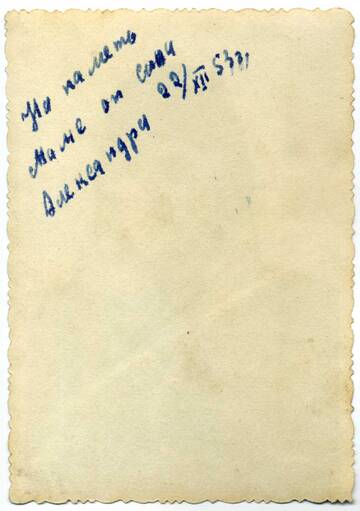 На паметь
Маме от сына
Александра 22/XII 53г.